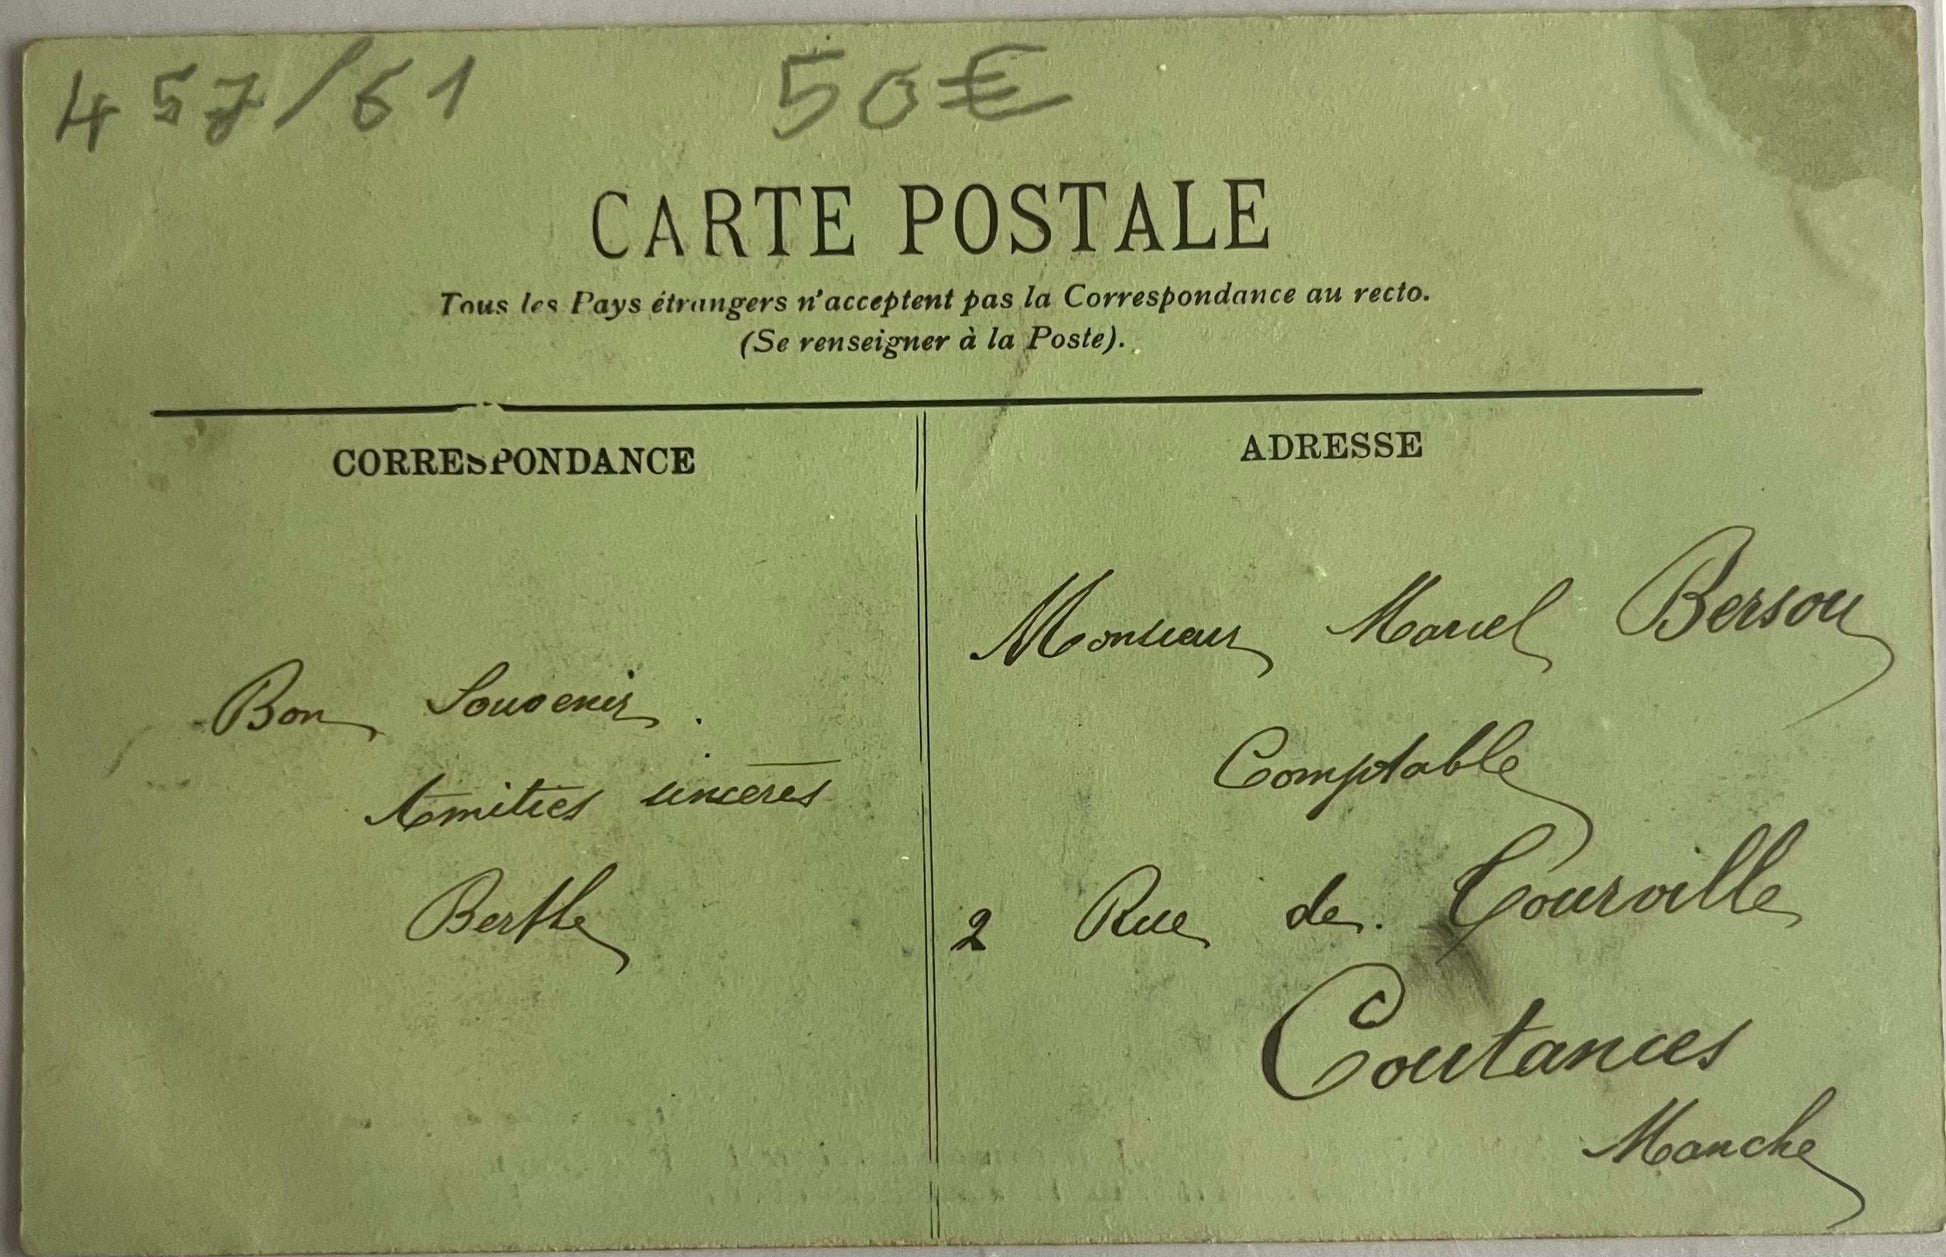 457/61 50€
CARTE POSTALE
Tous les Pays étrangers n'acceptent pas la Correspondance au recto.
(Se renseigner à la Poste).
CORRESPONDANCE
Bon Souvenir.
Amitiés sincères
Berthe
ADRESSE
Monsieur Marcel Berson
Comptable
2 Rue de Tourville
Coutances
Manche